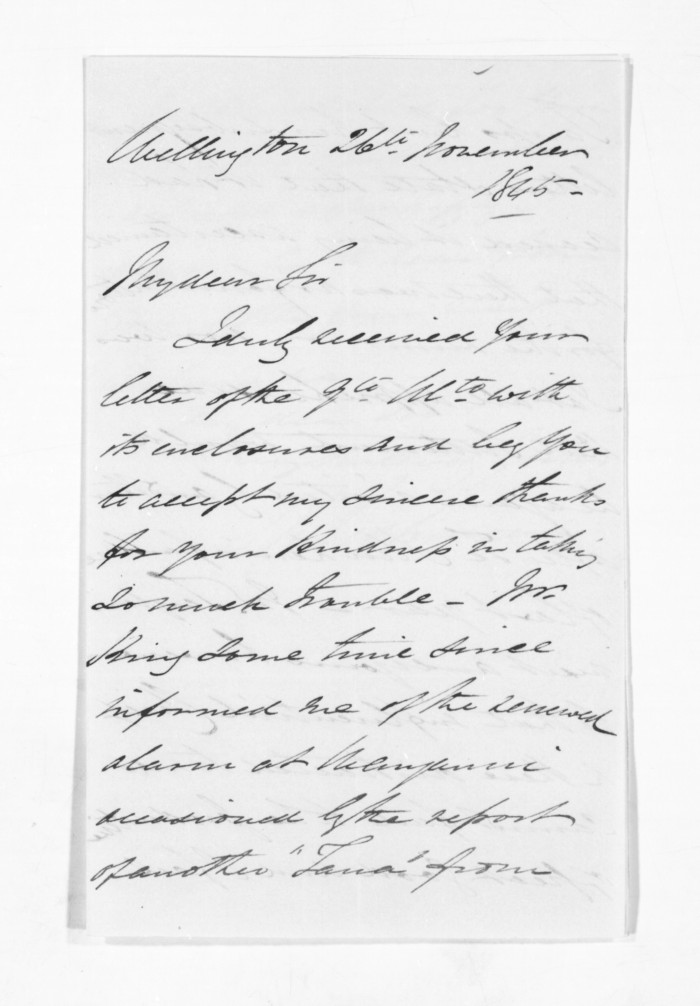 Wellington 26th November
1845-
My dear Sir
I duly received your
letter of the 9th Ulto with
its enclosures and beg you
to accept my sincere thanks
for your kindness in taking
so much trouble - Mr
King some time since
informed me of the renewed
alarm at Wanganui
occasioned by the report
of another "Taua" from